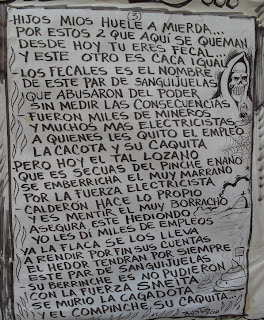 (3)
HIJOS MIOS HUELE A MIERDA...
POR ESTOS 2 QUE AQUI SE QUEMAN
DESDE HOY TU ERES FECAL...
Y ESTE OTRO ES CACA IGUAL
LOS FECALES ES EL NOMBRE
DE ESTE PAR DE SANGUIJUELAS
QUE ABUSARON DEL PODER
SIN MEDIR LAS CONSECUENCIAS
FUERON MILES DE MINEROS
Y MUCHOS MAS ELECTRICISTAS
A QUIENES LES QUITO EL EMPLEO
LA CACOTA Y SU CAQUITA
PERO HOY EL TAL LOZANO
QUE ES SECUAS DEL PINCHE ENANO
SE EMBERRCHA EL MUY MARRANO
POR LA FUERZA ELECTRICISTA
CALDERON HACE LO PROPIO
Y ES MENTIR EL MUY BORRACHO
ASEGURA ESTE HEDIONDO
YO LES DI MILES DE EMPLEOS
YA LA FLACA SE LOS LLEVA
A RENDIR POR FIN SUS CUENTAS
EL HEDOR TENDRAN POR SIEMPRE
ESTE PAR DE SANGUIJUELAS
SU BERRINCHE ES NO PUDIERON
CON LA FUERZA SMEITA
SE MURIO LA CAGADOTA
Y EL COMPINCHE, SU CAQUITA...